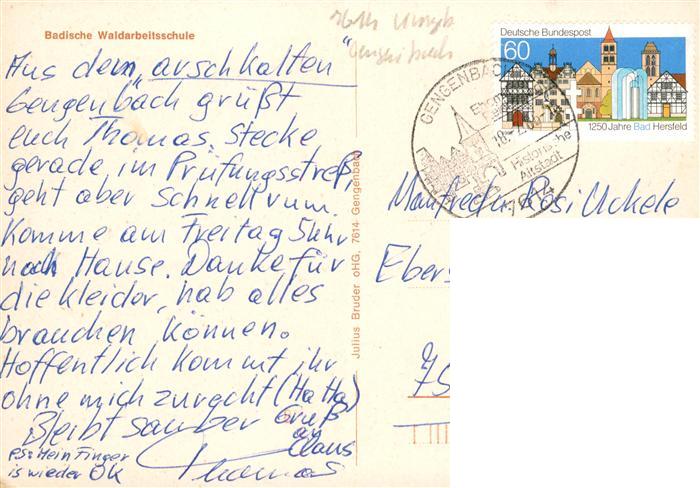 Badische Waldarbeitsschule
Aus dem „arschkalten"
Gengenbach grüßt
euch Thomas. Stecke
gerade im Prüfungsstreß,
geht aber schnell rum.
Komme am Freitag 5 Uhr
nach Hause. Danke für
die Kleider, hab alles
brauchen können.
Hoffentlich kommt ihr
ohne mich zurecht (Ha Ha)
Bleibt sauber Gruß
an
Claus
Thomas
PS: Mein Finger
is wieder OK
Julius Bruder oHG, 7614 Gengenbach
Deutsche Bundespost
60
1250 Jahre Bad Hersfeld
GENGENBACH
Historische
Altstadt
7614
Manfred u. Rosi Uckele
Ebers
75